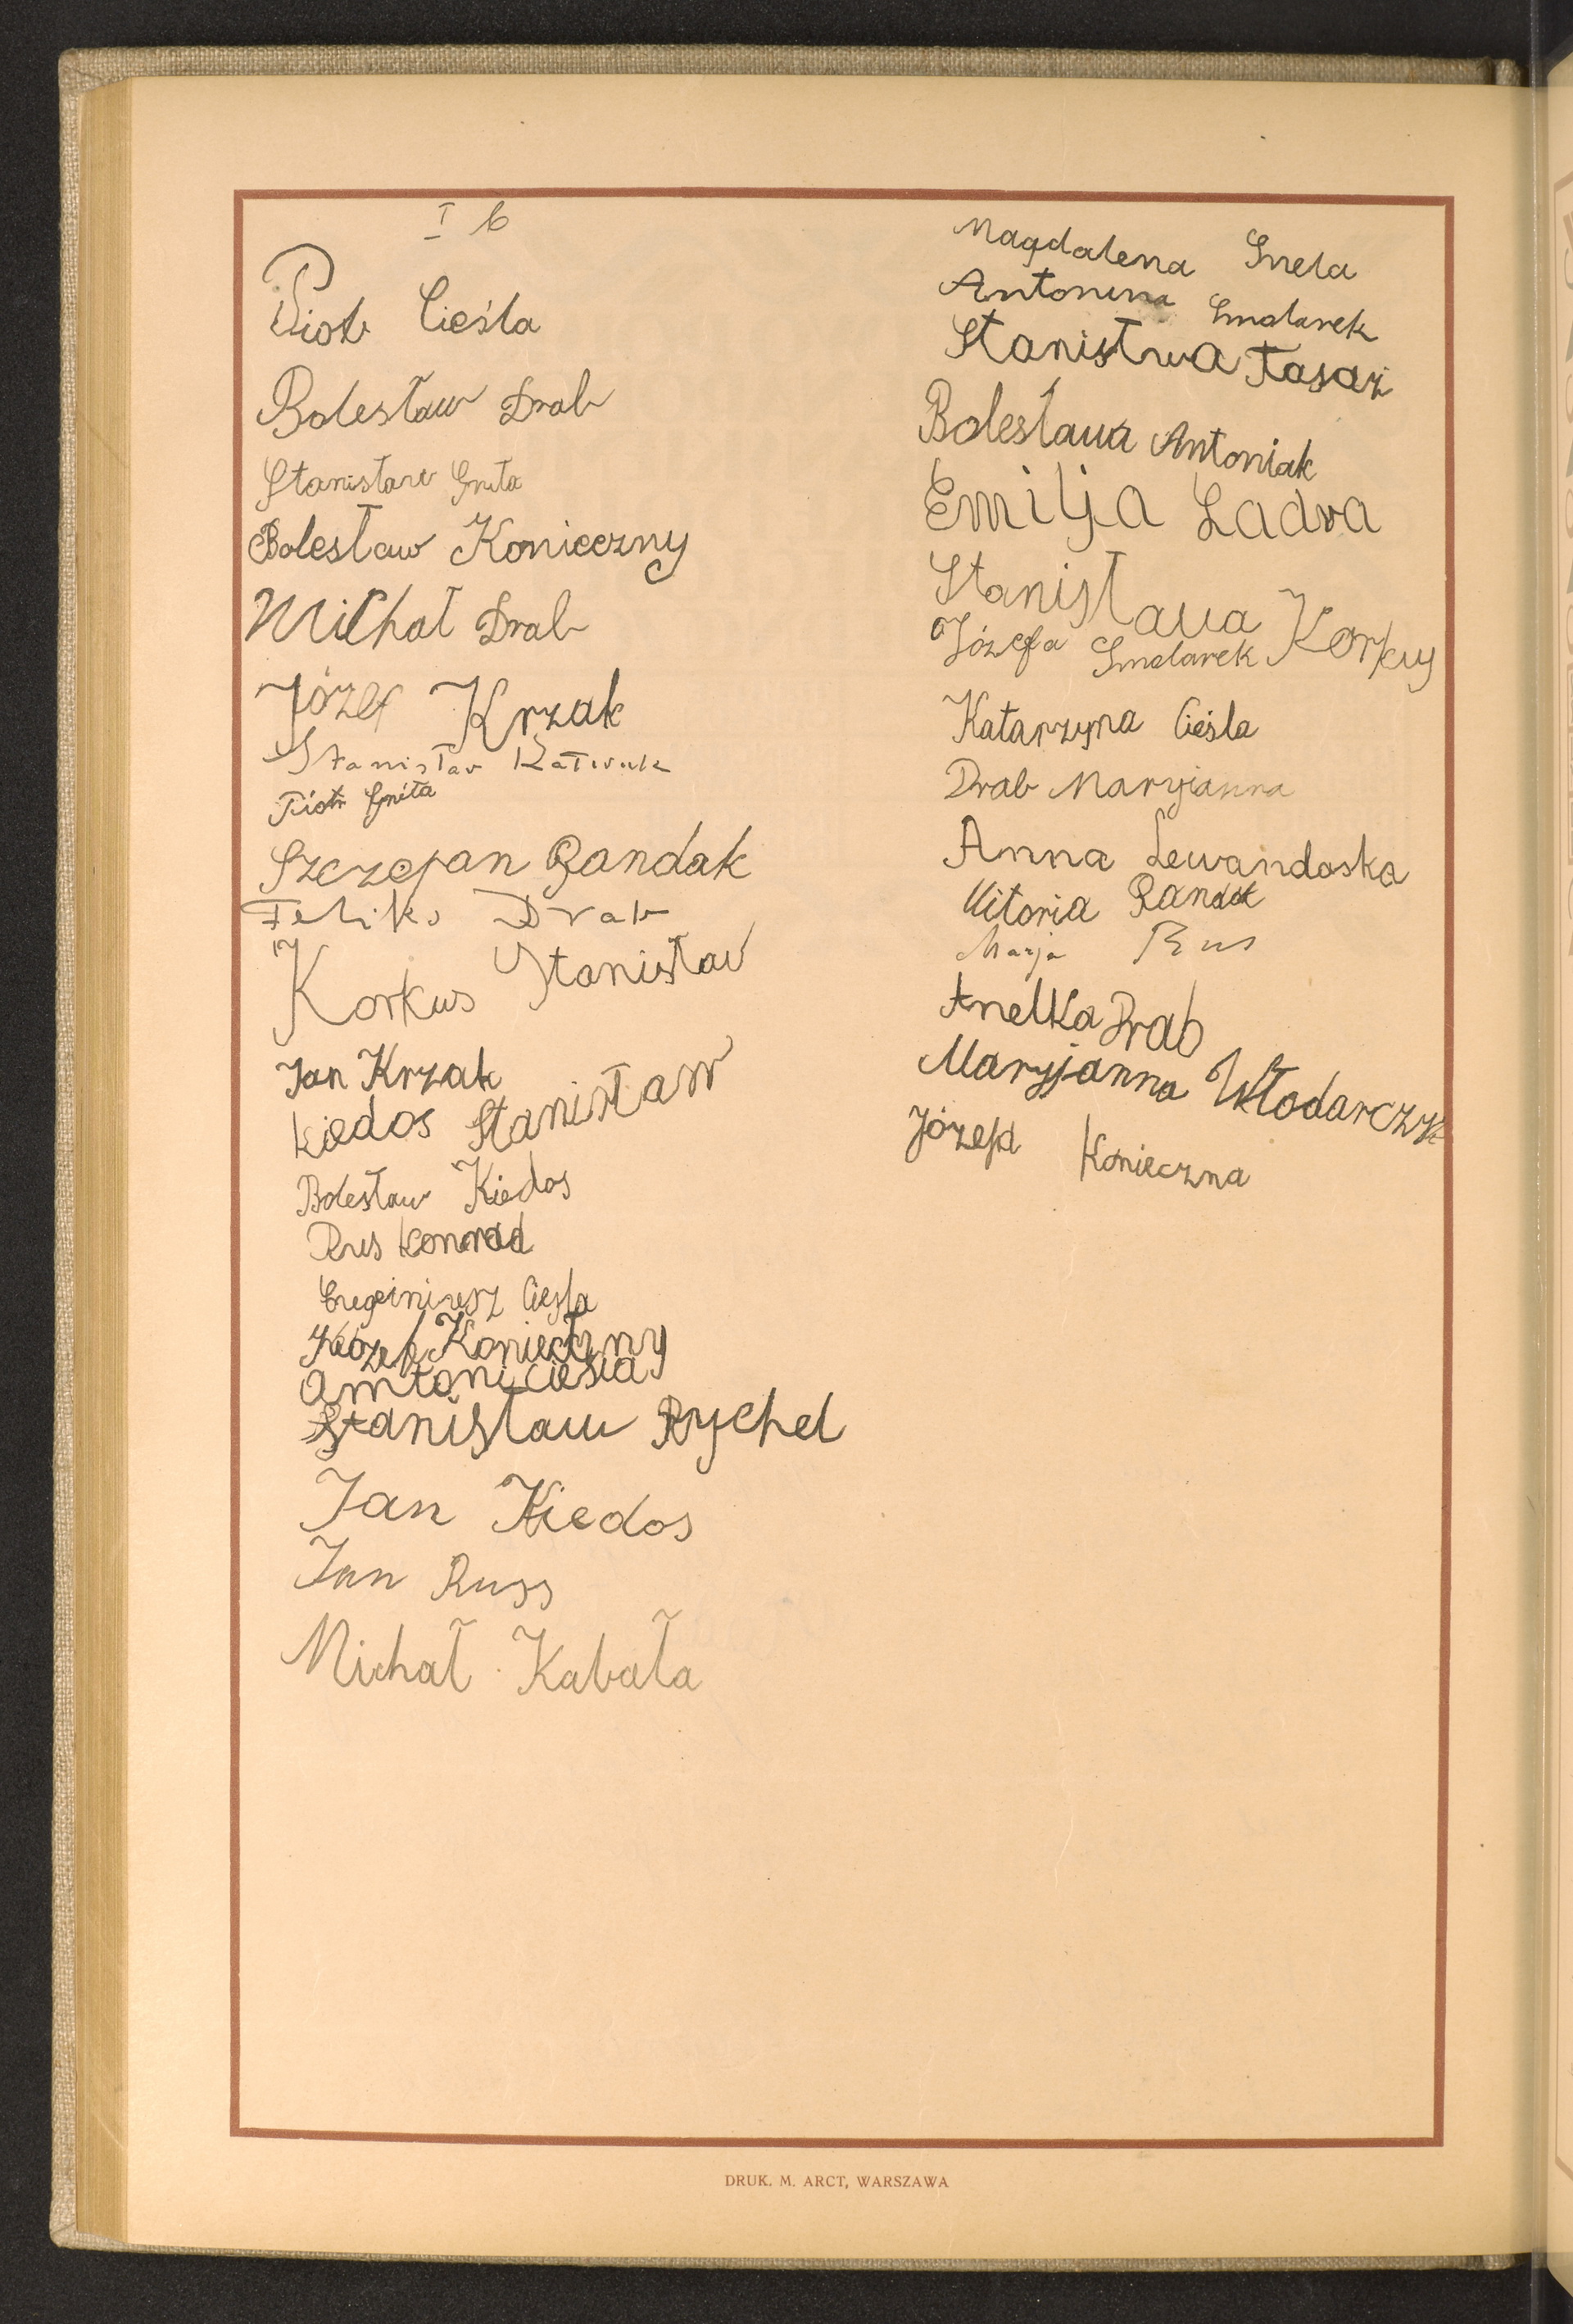 I b
Piotr Cieśla
Bolesław Drab
Stanisław Gnita
Bolesław Konieczny
Michał Drab
Józef Krzak
Stanisław
Piotr Gnita
Szczepan Bandak
Feliks Drab
Korkus Stanisław
Jan Krzak
Kiedos Stanisław
Bolesław Kiedos
Rus Konrad
Cieśla
Józef Konieczny
Antoni Cieśla
Stanisław Rychel
Jan Kiedos
Jan Russ
Michał Kabała
Magdalena
Antonina Smolarek
Stanistwa
Bolesława Antoniak
Emilja Ladra
Stanisława Korkus
Józefa Smolarek
Katarzyna Cieśla
Drab Maryianna
Anna Lewandoska
Witoria
Marja Rus
Anelka Drab
Maryjanna Włodarczyk
Józefa Konieczna
DRUK. M. ARCT, WARSZAWA